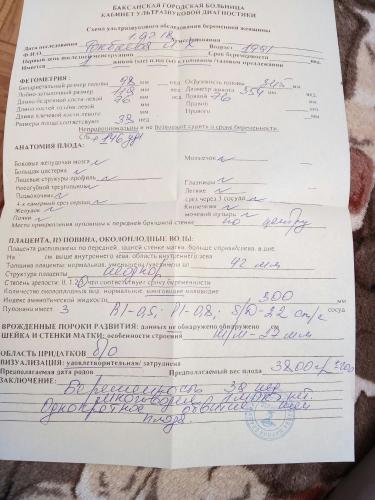 БАКСАНСКАЯ ГОРОДСКАЯ БОЛЬНИЦА
КАБИНЕТ УЛЬТРАЗВУКОВОЙ ДИАГНОСТИКИ
Схема ультразвукового обследования беременной женщины.
Дата исследования 1.07.18
Ф.И.О. Возраст 1991
Первый день последней менструации Срок беременности
живой (ые) плод (ы) в головном /тазовом предлежании
ФЕТОМЕТРИЯ:
Бипариетальный размер головы 98 мм нед. Окружность головы 345 мм
Лобно-затылочный размер 118 мм нед. Диаметр живота 354 мм
Длина бедренной кости левой 76 мм нед. Правой 76 мм
Длина костей голени левой мм Правой
Длина плечевой кости левого мм Правого
Размеры плода соответствуют 38 нед.
Непропорциональны и не позволяют судить о сроке беременности.
С/б + 146 уд/
АНАТОМИЯ ПЛОДА:
Боковые желудочки мозга N Мозжечок N
Большая цистерна N
Лицевые структуры профиль N Глазницы N
Носогубной треугольник N Легкие N
Позвоночник N срез через 3 сосуда N
4-х камерный срез сердца N Кишечник N
Желудок N мочевой пузырь N
Почки N
Место прикрепления пуповины к передней брюшной стенке по центру
ПЛАЦЕНТА, ПУПОВИНА, ОКОЛОПЛОДНЫЕ ВОДЫ:
Плацента расположена по передней, задней стенке матки, больше справа/слева, в дне.
На см выше внутреннего зева, область внутреннего зева
Толщина плаценты: нормальная, уменьшена /увеличена до 42 мм
Структура плаценты неоднор.
Степень зрелости: 0, 1, 2, 3 что соответствует сроку беременности
Количество околоплодных вод: нормальное, многоводие маловодие
Индекс амниотической жидкости 300 мм
Пуповина имеет 3 сосуда
ВРОЖДЕННЫЕ ПОРОКИ РАЗВИТИЯ: данных не обнаружено обнаружено
ШЕЙКА И СТЕНКИ МАТКИ: особенности строения ш/м - 27 мм
ОБЛАСТЬ ПРИДАТКОВ б/о
ВИЗУАЛИЗАЦИЯ: удовлетворительная/ затруднена
Предполагаемая дата родов Предполагаемый вес плода 3800 гр ± 200
ЗАКЛЮЧЕНИЕ:
Беременность 38 нед
многоводие
Однократное обвитие шеи
плода